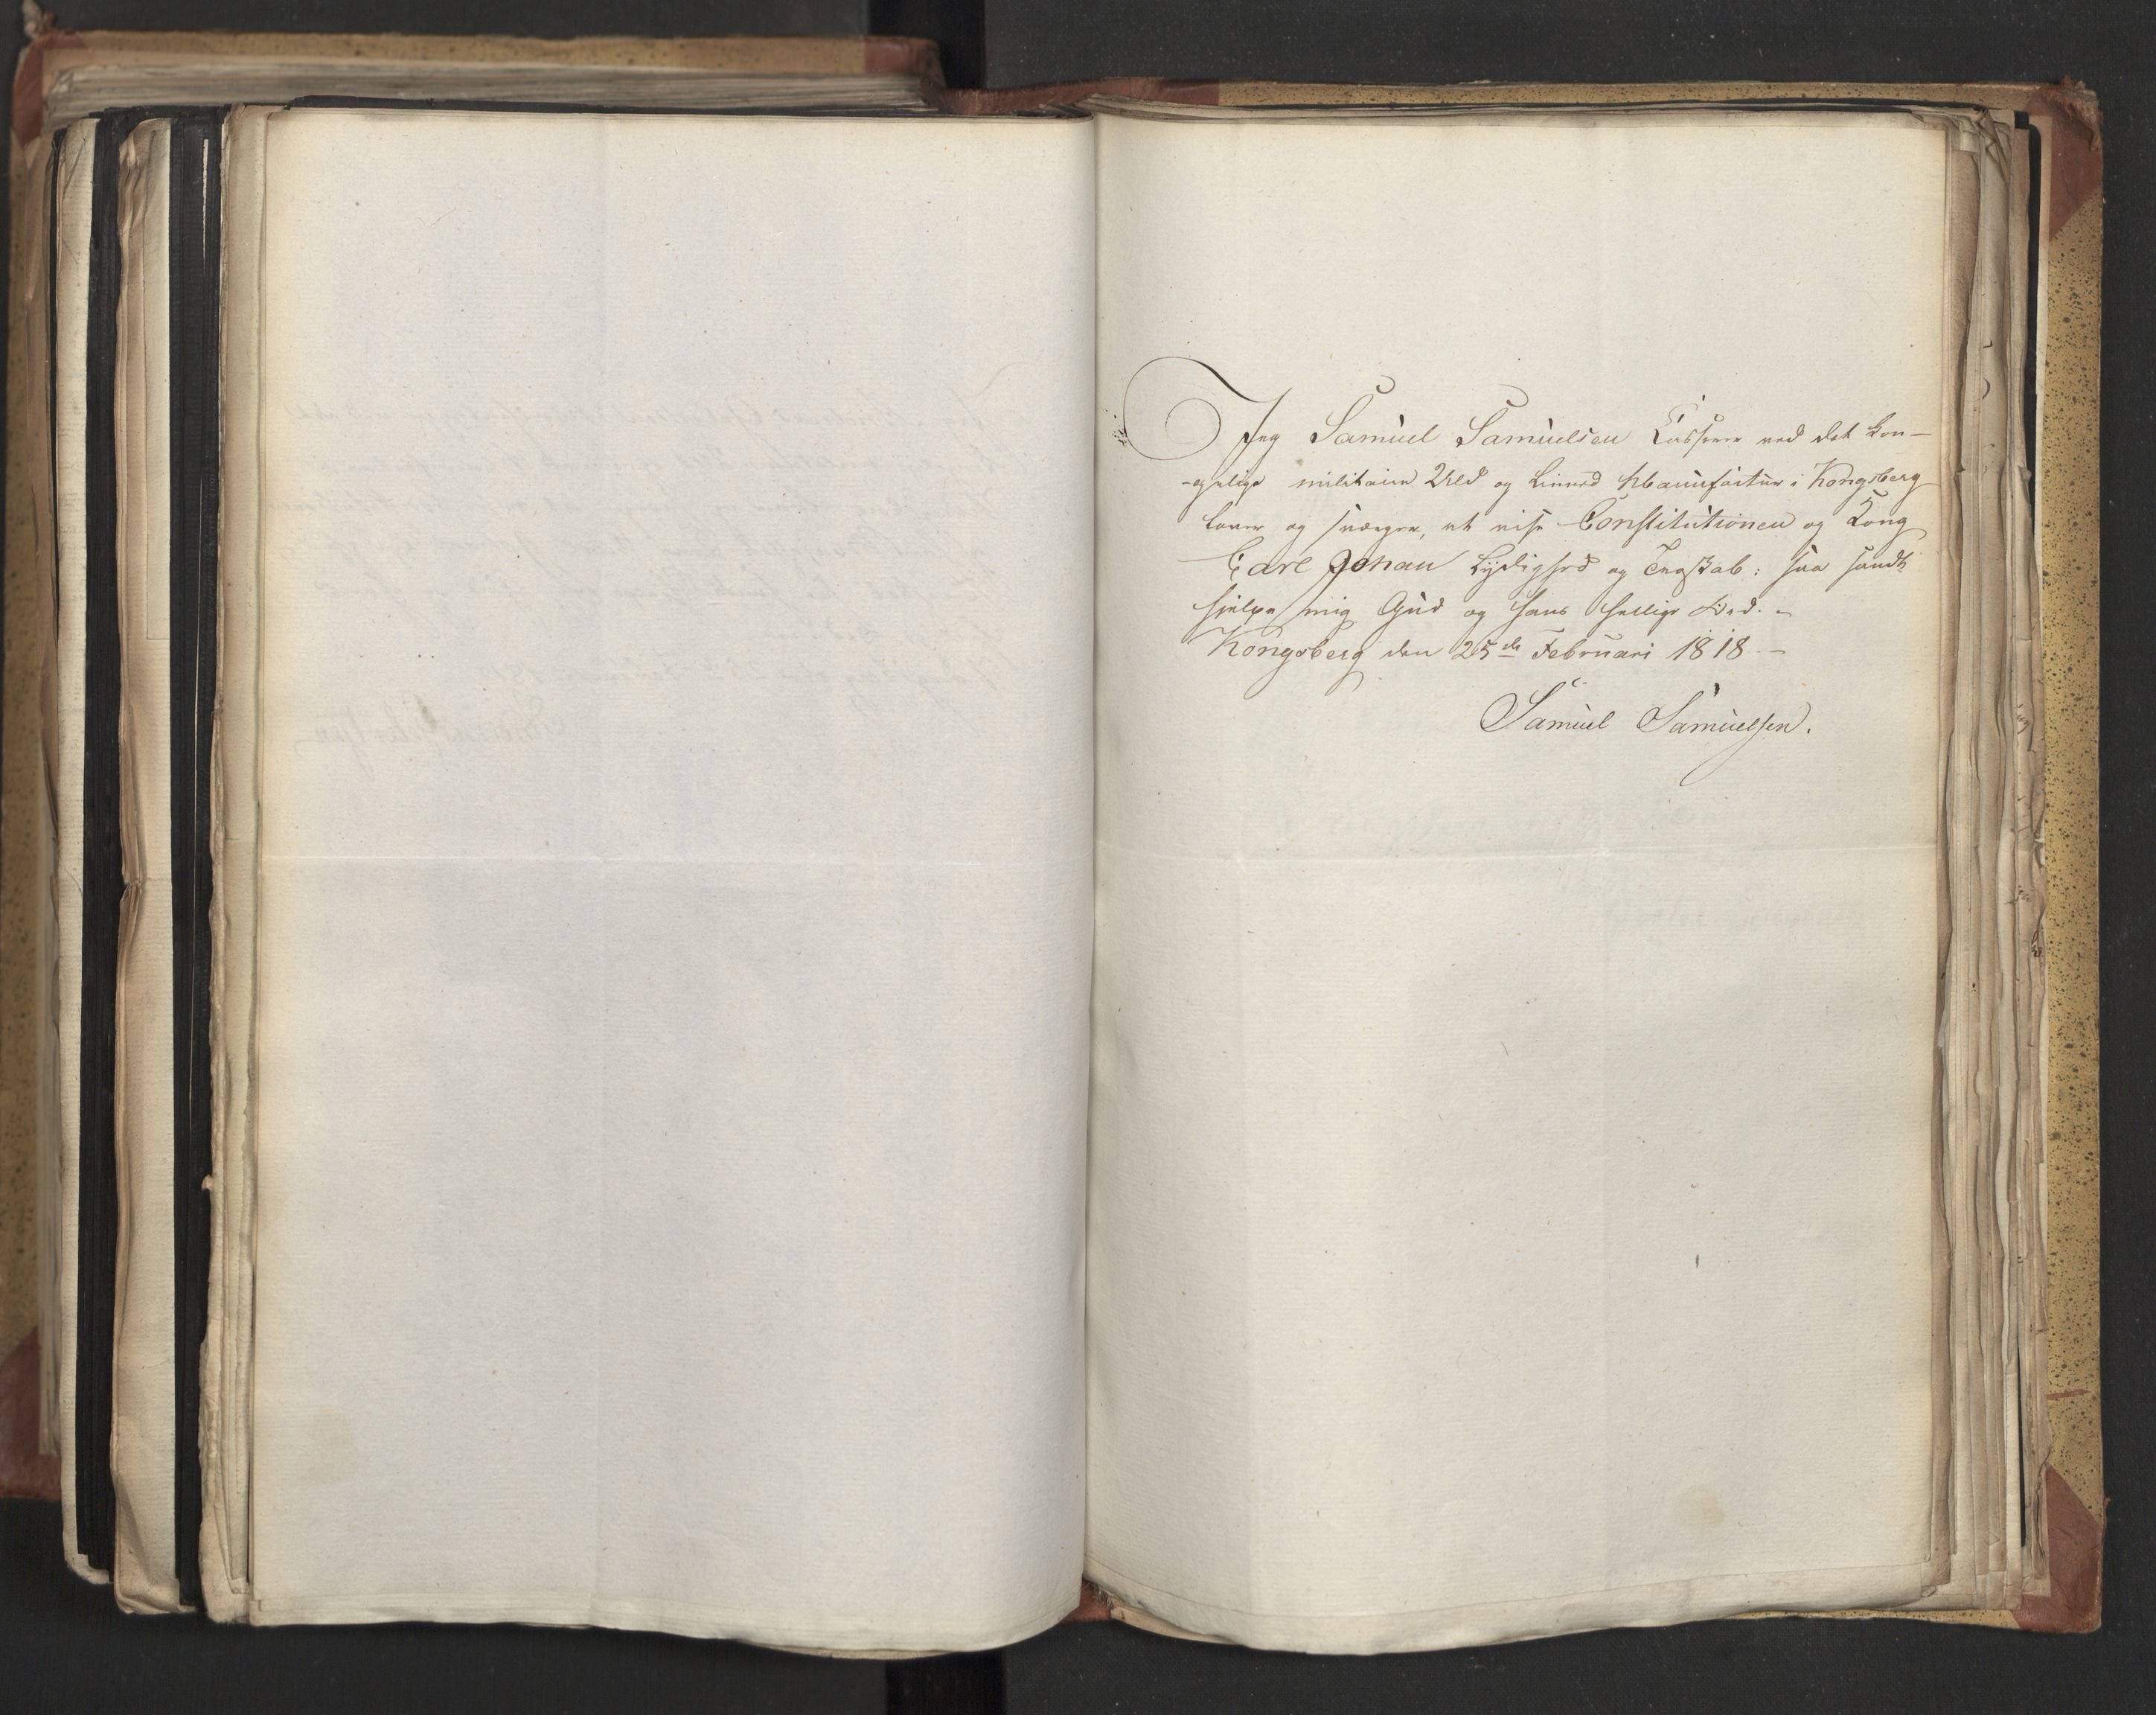 Jeg Samuel Samuelsen Casserer ved det kon-
-gelige militaire Uld og Linned Manufactur i Kongsberg
lover og sværger, at vise Constitutionen og Kong
Carl Johan Lydighed og Troskab: saa sandt
hjelpe mig Gud og hans hellige Ord. -
Kongsberg den 25de Februari 1818 -
Samuel Samuelsen.